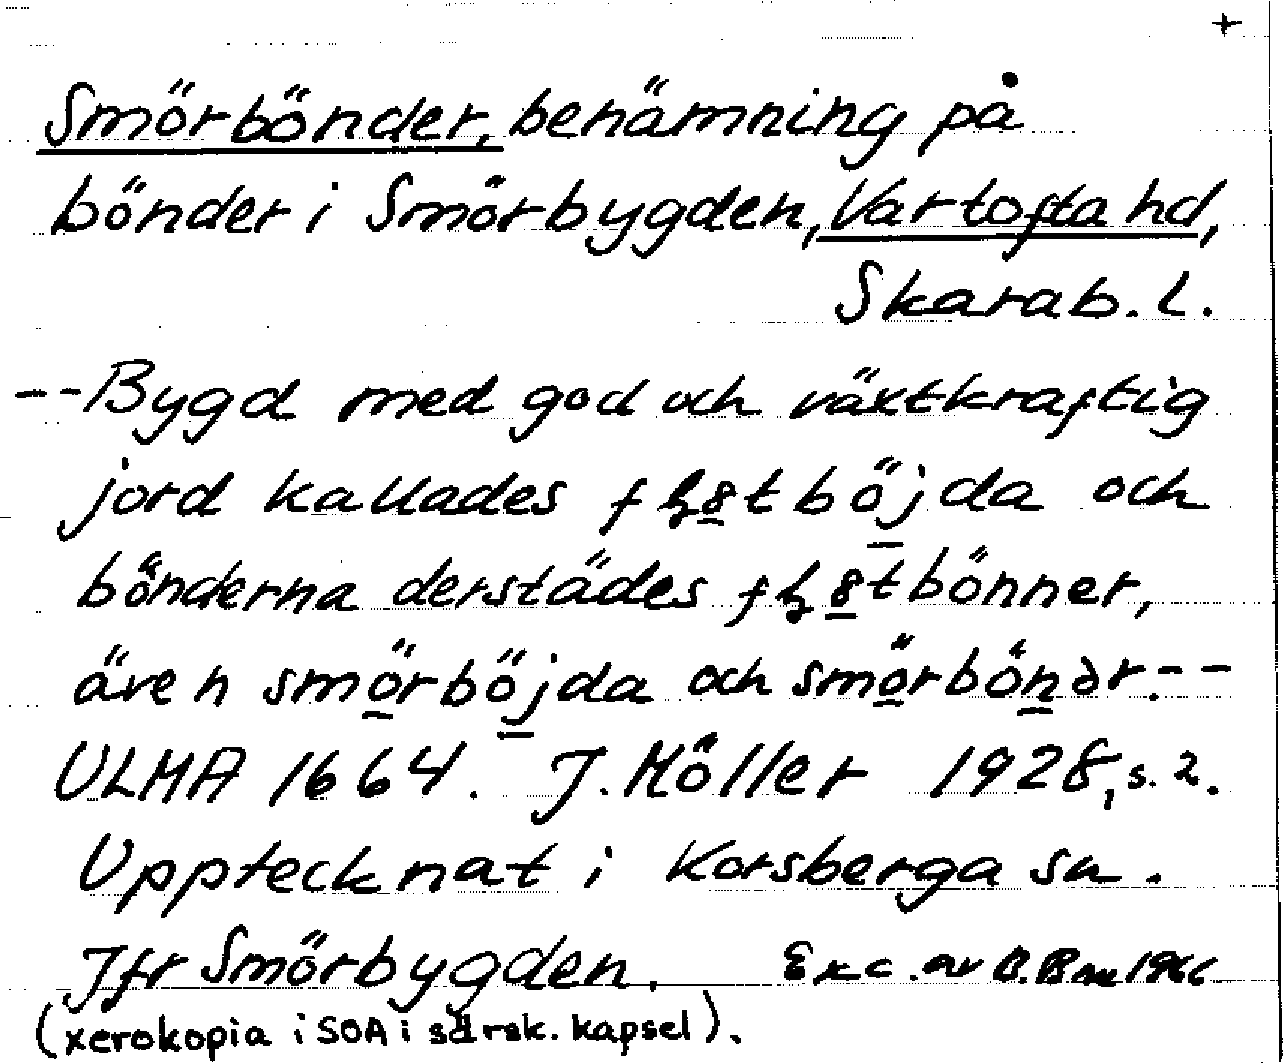 +
Smörbönder, benämning på
bönder i Smörbygden, Vartofta hd,
Skarab. l.
--Bygd med god och växtkraftig
jord kallades böjda och
bönderna derstädes
även smörböjda och smörbönər.--
ULMA 1664. J. Möller 1928, s. 2.
Upptecknat i Korsberga sn.
Jfr Smörbygden. Exc. av B.
(xerokopia i SOA i särsk. kapsel).